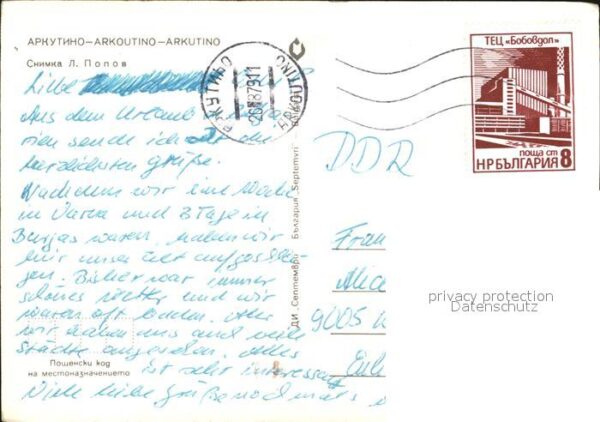 АРКУТИНО—ARKOUTINO—ARKUTINO
Снимка Л. Попов
Liebe
Aus dem Urlaub in
rien sende ich dir die
herzlichsten Grüße.
Nachdem wir eine Woche
in Varna und 3 Tage in
Burgas waren, haben wir
hier unser Zelt aufgeschla-
gen. Bisher war immer
schönes Wetter und wir
waren oft baden. Aber
wir haben uns auch viele
Städte angesehen. Alles
ist sehr interessant
Viele liebe Grüße nochmals
Пощенски код
на местоназначението
ДИ „Септември" България „Septemvri"
АРКУТИНО
ARKOUTINO
ТЕЦ „Бобовдол"
поща ст
НР БЪЛГАРИЯ 8
DDR
Frau
Alice
9005
privacy protection
Datenschutz